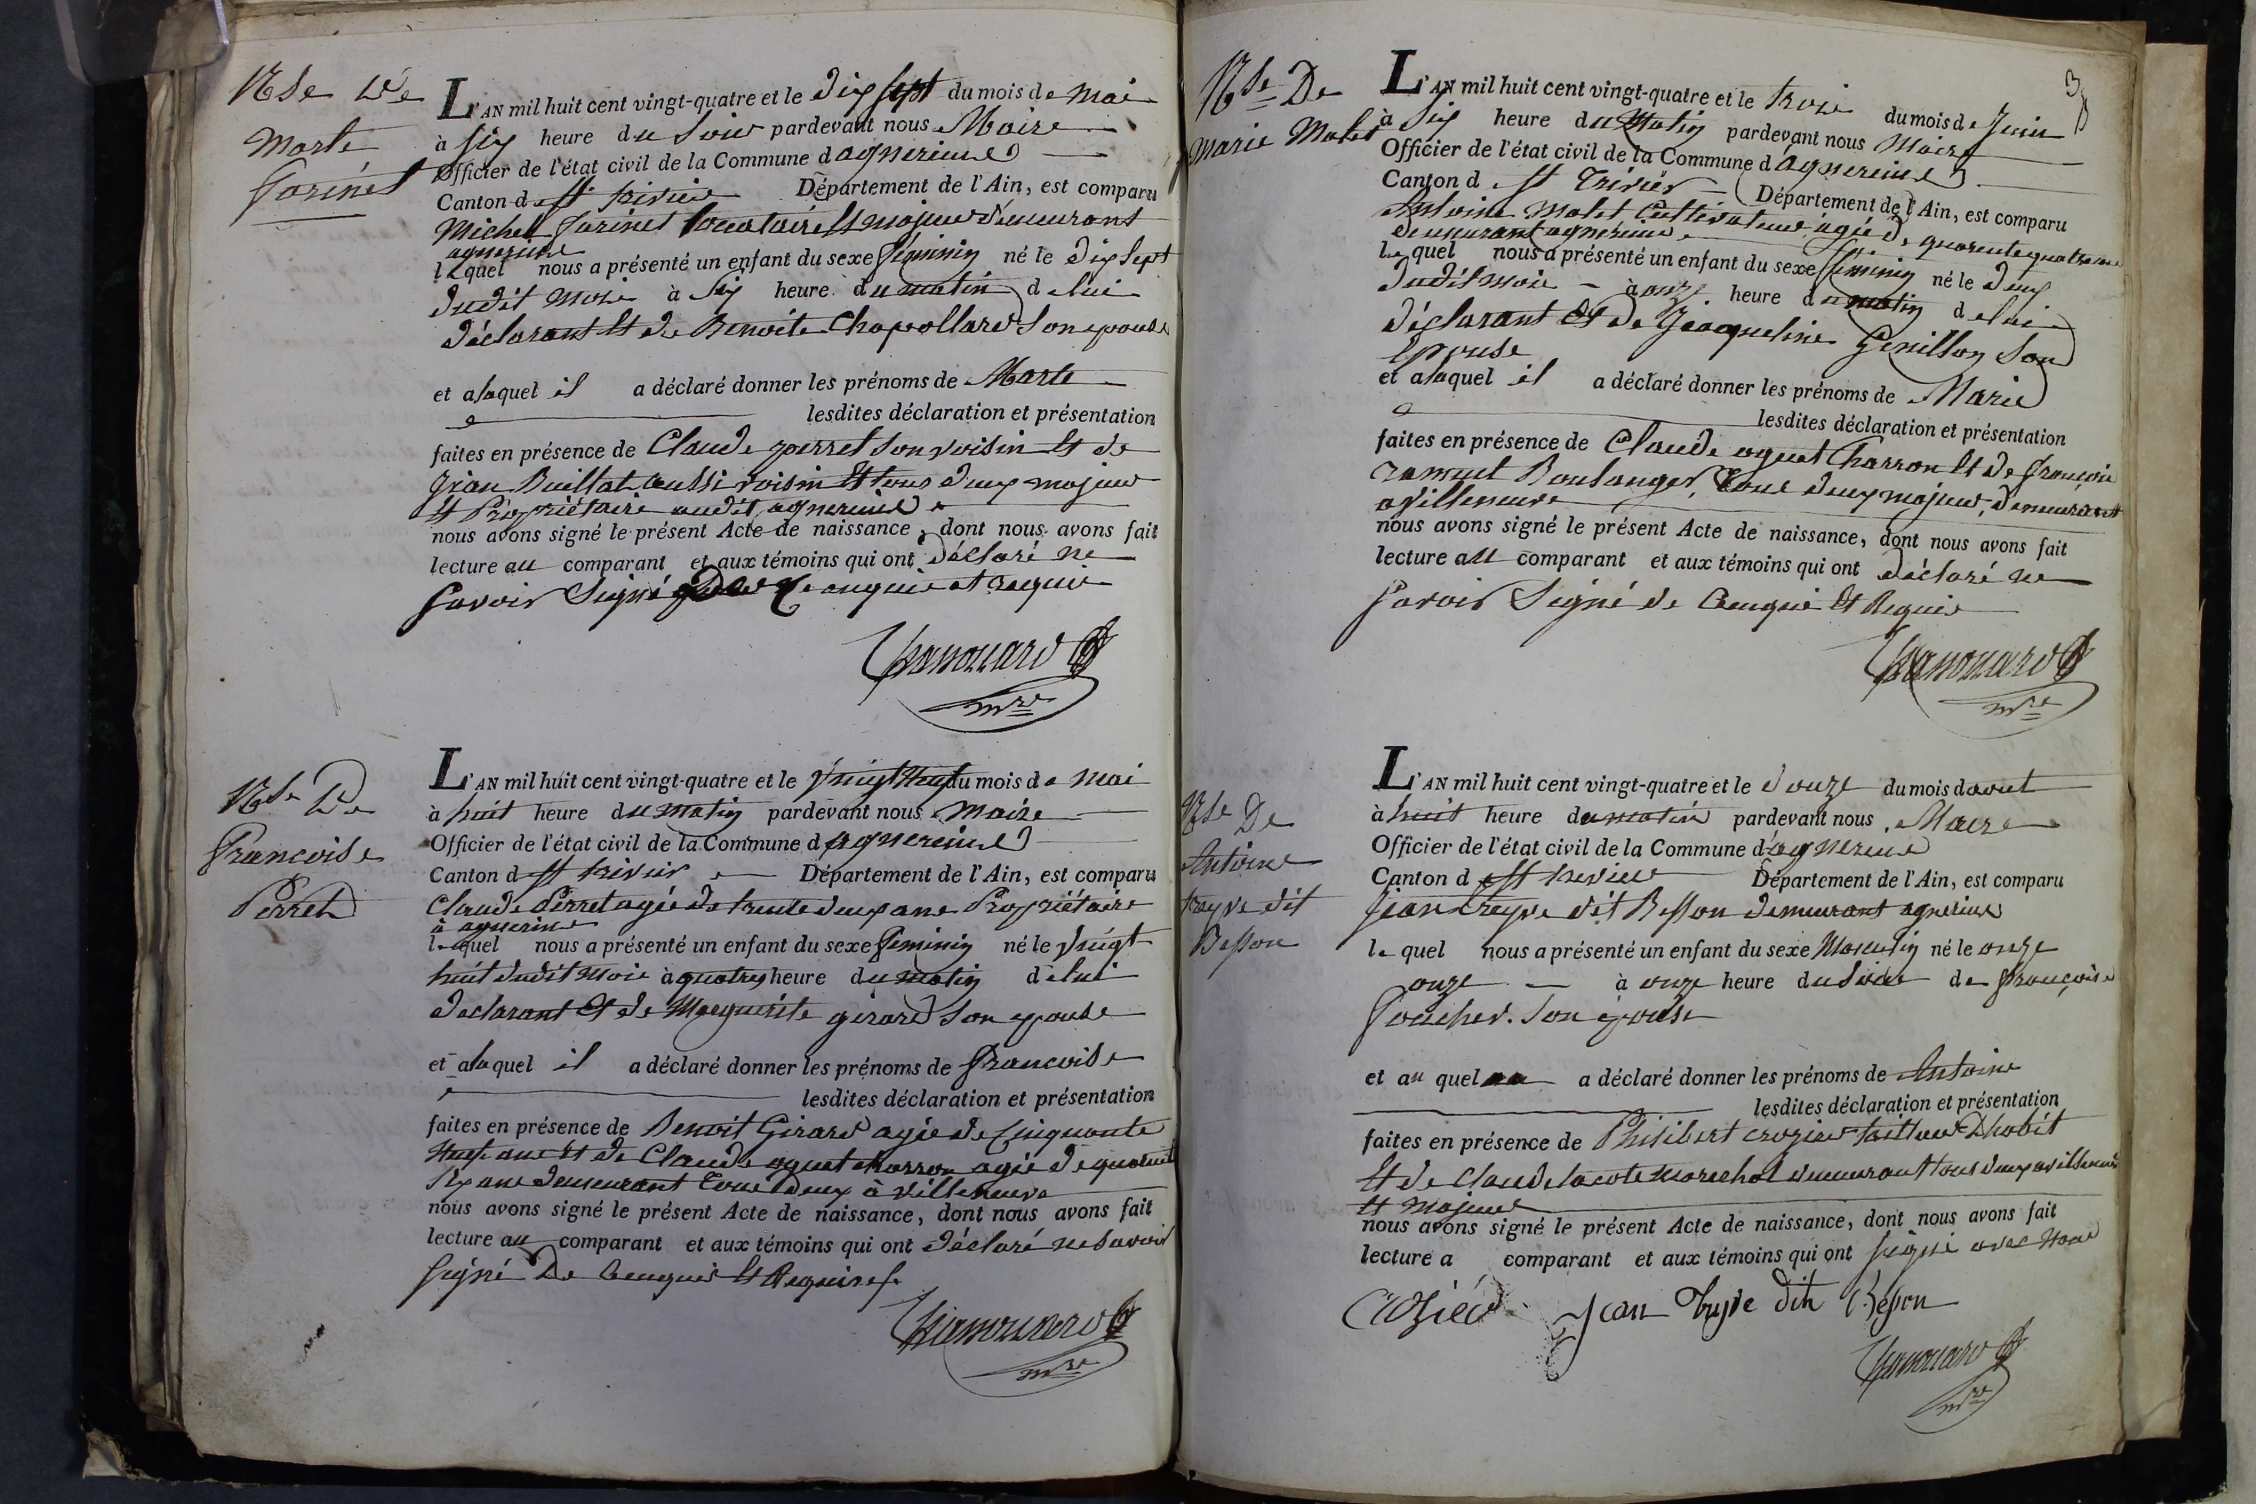 Nse De
Marte
Farinet
L'AN mil huit cent vingt-quatre et le dix sept du mois de mai
à six heure du soir pardevant nous Maire
Officier de l'état civil de la Commune d'agnereins
Canton d St trivier Département de l'Ain, est comparu
Michel farinet locataire et majeur demeurant
agnereins
lequel nous a présenté un enfant du sexe féminin né le dix sept
dudit mois à six heure du matin de lui
déclarant et de Benoite Chapollard son epouse
et alaquel il a déclaré donner les prénoms de Marte
lesdites déclaration et présentation
faites en présence de Claude perret son voisin et de
jean Buillat aussi voisin et tous deux majeur
et Propriétaire audit agnereins
nous avons signé le présent Acte de naissance, dont nous avons fait
lecture au comparant et aux témoins qui ont déclaré ne
savoir signé de ce enquis et requis
mre
Nse De
francoise
Perret
L'AN mil huit cent vingt-quatre et le vingt neuf du mois de mai
à huit heure du matin pardevant nous maire
Officier de l'état civil de la Commune d'agnereins
Canton d St trivier Département de l'Ain, est comparu
Claude Perret agée de trente deux ans Propriétaire
à agnereins
lequel nous a présenté un enfant du sexe feminin né le vingt
huit dudit mois à quatre heure du matin de lui
declarant et de Marguerite girard son epouse
et alaquel il a déclaré donner les prénoms de francoise
lesdites déclaration et présentation
faites en présence de Benoit Girard agée de Cinquante
neuf ans et de Claude aguet charron agée de quarente
six ans demeurant tous deux à villeneuve
nous avons signé le présent Acte de naissance, dont nous avons fait
lecture au comparant et aux témoins qui ont déclaré ne savoir
signé De ce enquis et Requis
mre
3
Nse De
Marie Malet
L'AN mil huit cent vingt-quatre et le trois du mois de Juin
à six heure du Matin pardevant nous Maire
Officier de l'état civil de la Commune d'agnereins
Canton d St Trivier Département de l'Ain, est comparu
Antoine Malet Cultivateur agée de quarente quatre ans
demeurant agnereins
lequel nous a présenté un enfant du sexe feminin né le deux
dudit mois à onze heure du matin de lui
déclarant et de Jacqueline Genillon son
Epouse
et alaquel il a déclaré donner les prénoms de Marie
lesdites déclaration et présentation
faites en présence de Claude aguet Charron et de françois
ramuet Boulanger, tous deux majeur, demeurant
avilleneuve
nous avons signé le présent Acte de naissance, dont nous avons fait
lecture au comparant et aux témoins qui ont déclaré ne
savoir Signé de ce enquis et Requis
mre
Nse De
Antoine
trayve dit
Besson
L'AN mil huit cent vingt-quatre et le douze du mois daout
à huit heure du matin pardevant nous Maire
Officier de l'état civil de la Commune d'agnereins
Canton d St trivier Département de l'Ain, est comparu
Jean treyve dit Besson demeurant agnereins
lequel nous a présenté un enfant du sexe Masculin né le onze
onze à onze heure du soir de françoise
foucher son épouse
et au quel a déclaré donner les prénoms de Antoine
lesdites déclaration et présentation
faites en présence de Philibert crozier tailleur Dhabit
et de Claude lacote marechal demeurant tous deux avilleneuve
et majeur
nous avons signé le présent Acte de naissance, dont nous avons fait
lecture a comparant et aux témoins qui ont signé avec nous
Crozier Jean treyve dit Beson
mre